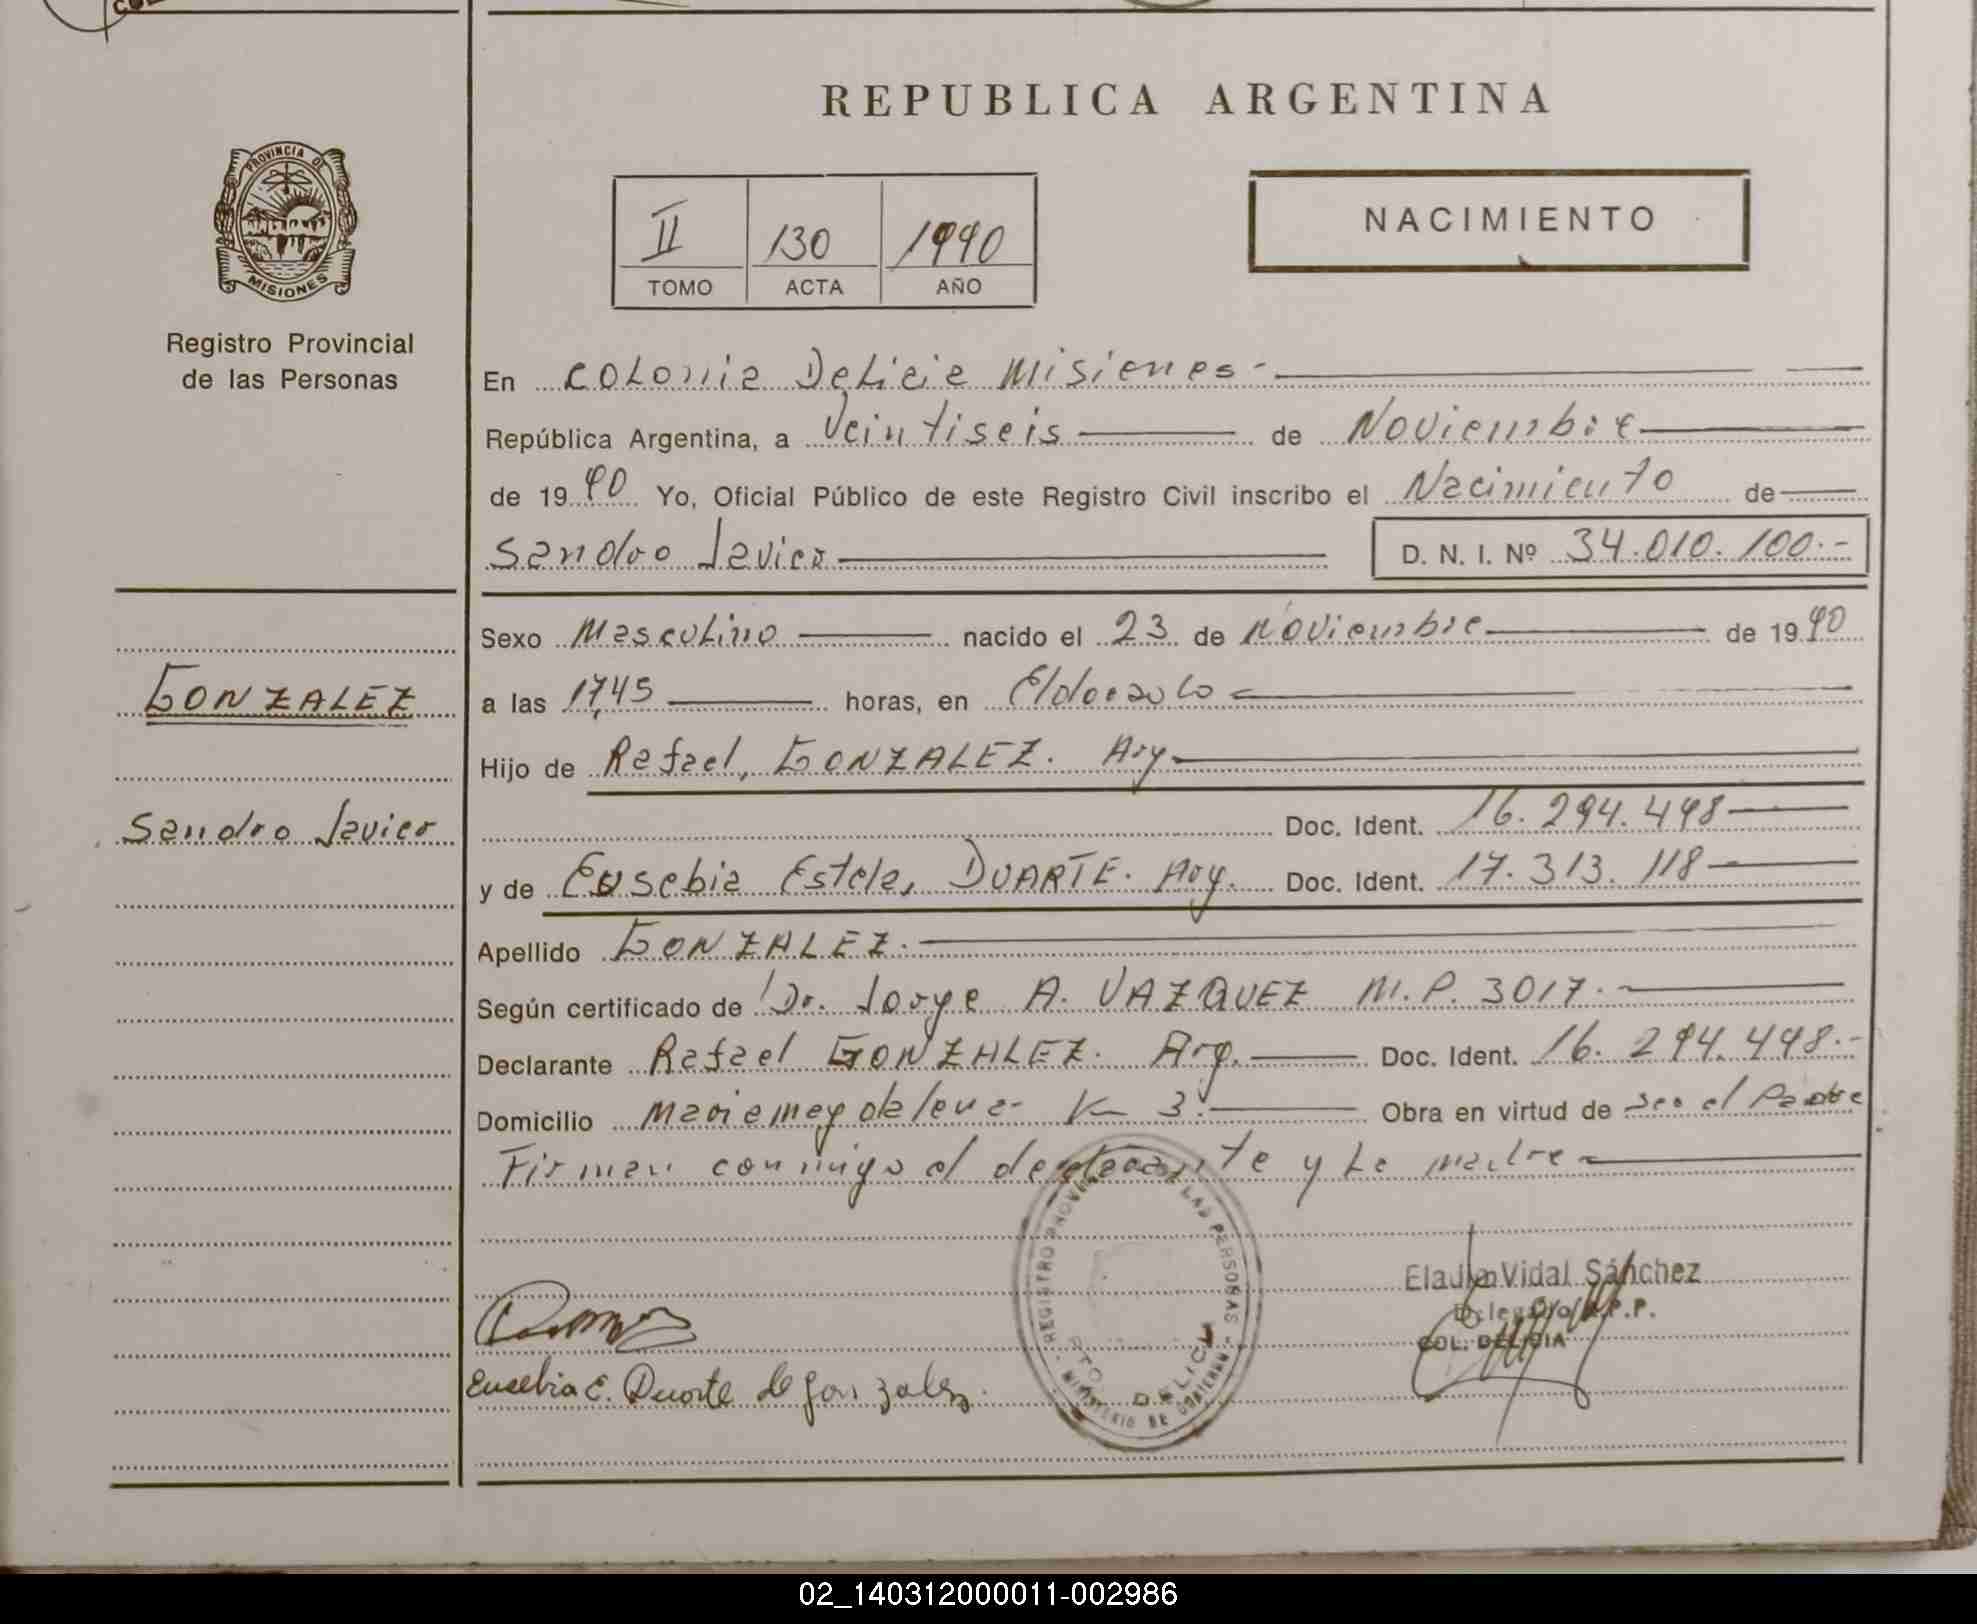 REPUBLICA ARGENTINA
PROVINCIA DE
MISIONES
Registro Provincial
de las Personas
II 130 1990
TOMO ACTA AÑO
NACIMIENTO
En Colonia Delicia Misiones.-
República Argentina, a Veintiseis de Noviembre
de 1990 Yo, Oficial Público de este Registro Civil inscribo el Nacimiento de
Sandro Javier D. N. I. Nº 34.010.100.-
Sexo Masculino nacido el 23 de Noviembre de 1990
GONZALEZ
a las 17,45 horas, en Eldorado
Hijo de Rafael, GONZALEZ. Arg.
Sandro Javier
Doc. Ident. 16.294.498
y de Eusebia Estela, DUARTE. Arg. Doc. Ident. 17.313.118
Apellido GONZALEZ.
Según certificado de Dr. Jorge A. VAZQUEZ M.P. 3017.
Declarante Rafael GONZALEZ. Arg. Doc. Ident. 16.294.498.-
Domicilio Mariamagdalena- K 3. Obra en virtud de ser el Padre
Firman conmigo el declarante y la madre
REGISTRO LAS PERSONAS
DELICIA
MINISTERIO DE GOBIERNO
Eladio Vidal Sánchez
Delegado R.P.P.
COL. DELICIA
Eusebia E. Duarte de gonzalez.
02_140312000011-002986